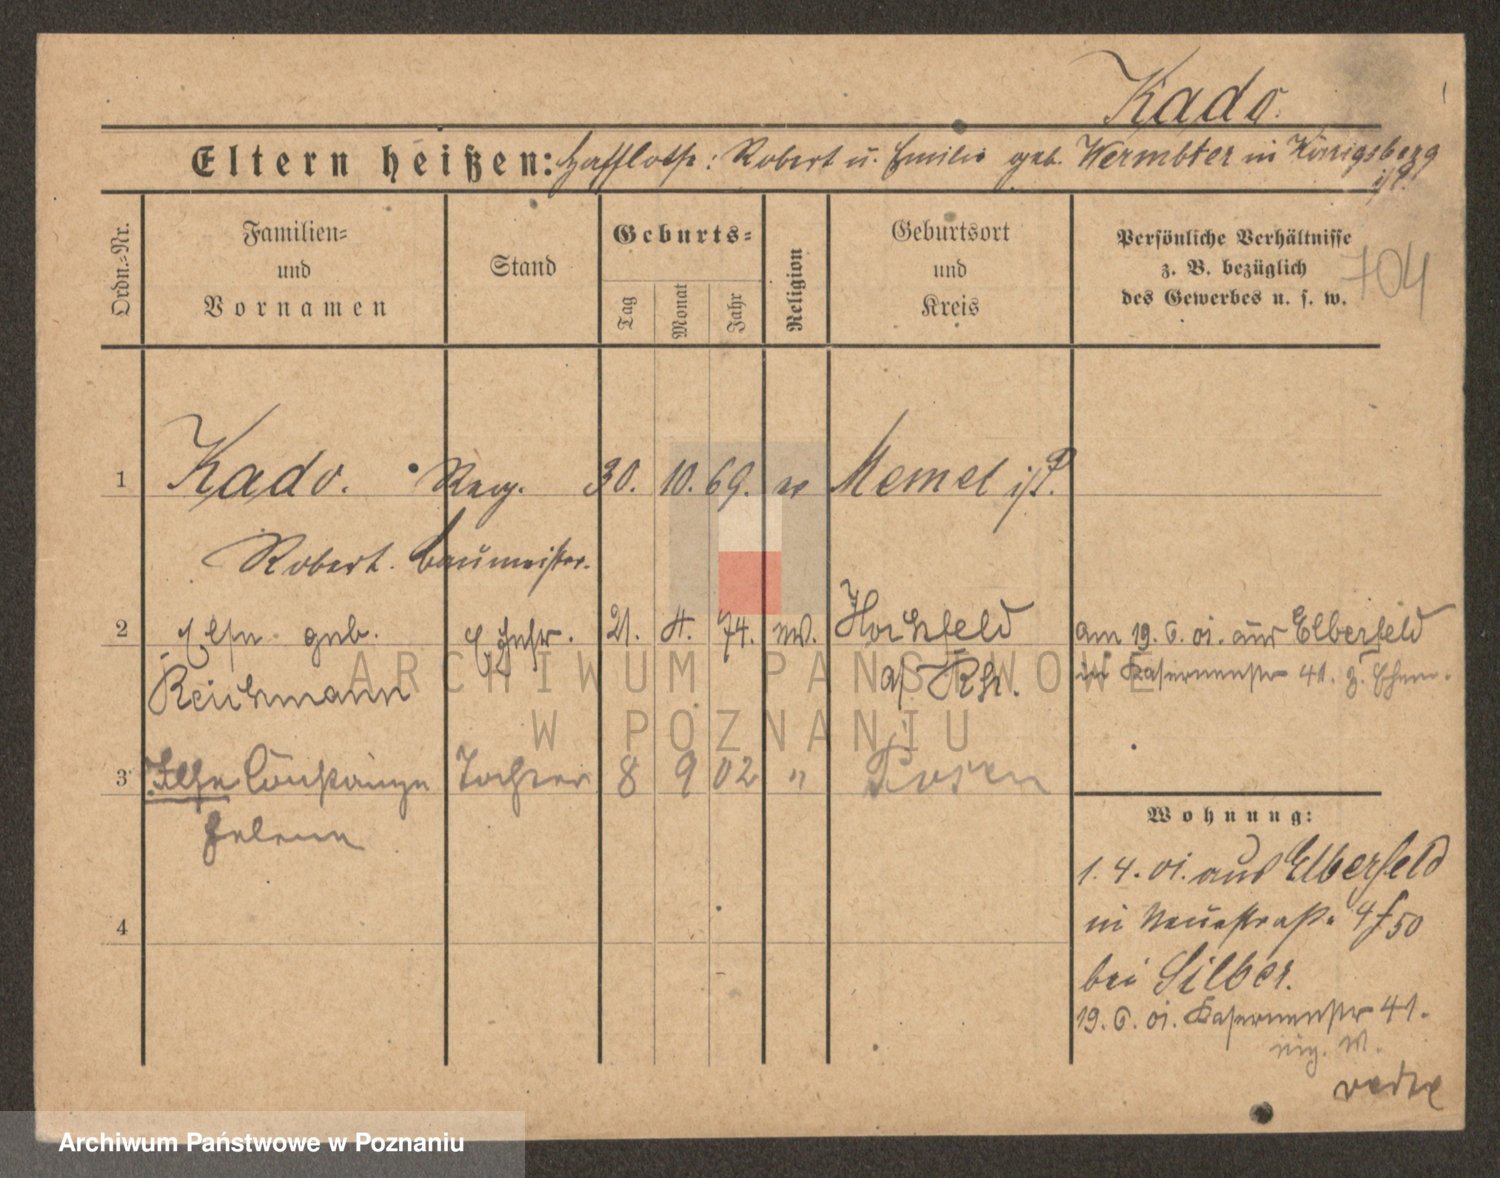 Kado.
Eltern heißen: Robert u. Emilie geb. Wermbter in Königsberg
i/P.
Ordn.-Nr.
Familien-
und
Vornamen
Stand
Geburts-
Tag
Monat
Jahr
Religion
Geburtsort
und
Kreis
Persönliche Verhältnisse
z. B. bezüglich
des Gewerbes u. s. w.
704
1 Kado. Reg. 30. 10. 69. ev Memel i/P.
Robert. baumeister.
2 Else geb. Ehefr. 21. 4. 74. ev. Hochfeld am 19. 6. 01. aus Elberfeld
Reichmann a/ Rh. in Kasernenstr 41. z. Ehem.
3 Ilse Constanze Tochter 8 9 02 " Posen
Helene
4
Wohnung:
1. 4. 01. aus Elberfeld
in Neuestraße 4/50
bei Silber.
19. 6. 01. Kasernenstr 41.
eig. W.
ARCHIWUM PAŃSTWOWE
W POZNANIU
Archiwum Państwowe w Poznaniu